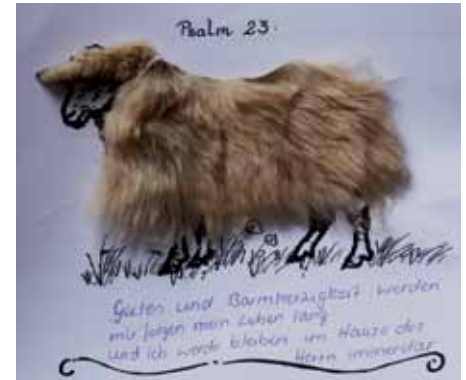 Psalm 23.
Gutes und Barmherzigkeit werden
mir folgen mein Leben lang
und ich werde bleiben im Hause des
Herrn immerdar